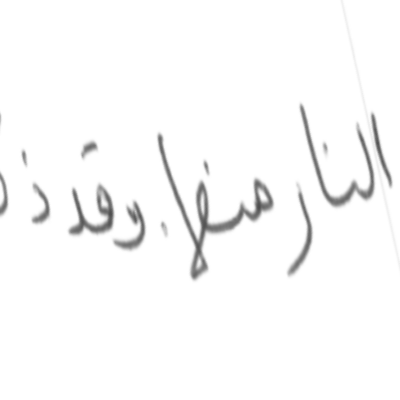 النار منها. وقد